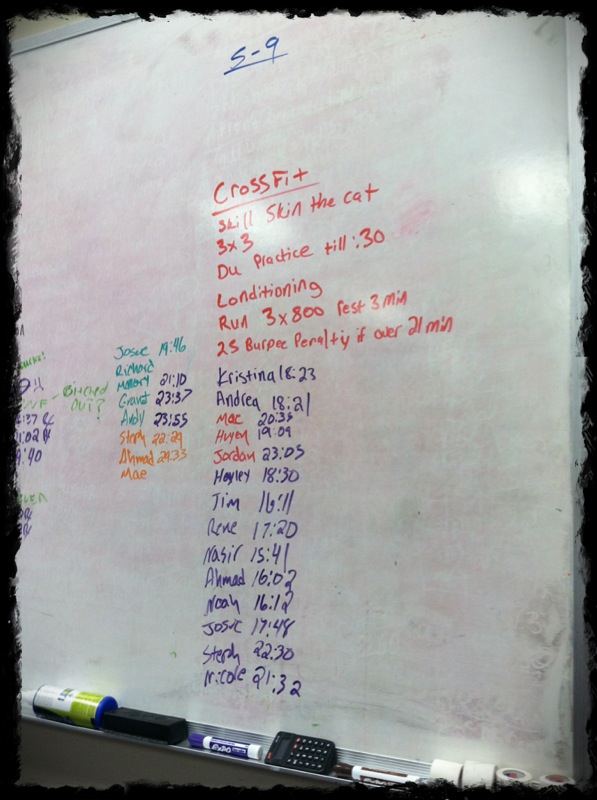 5-9
CrossFit
Skill Skin the cat
3x3
Du Practice till :30
Conditioning
Run 3x800 rest 3 min
25 Burpee Penaltiy if over 21 min
Kristina 18:23
Andrea 18:21
Mac 20:35
Huyen 19:09
Jordan 23:05
Hayley 18:30
Jim 16:11
Rene 17:20
Nasir 15:41
Ahmad 16:02
Noah 16:12
Josue 17:48
Sterdy 22:30
Nicole 21:32
Josue 19:46
Richard
Mallory 21:10
Grant 23:37
Andy 23:55
Ahmad 24:33
Mae
Bitched
out?
EXPO